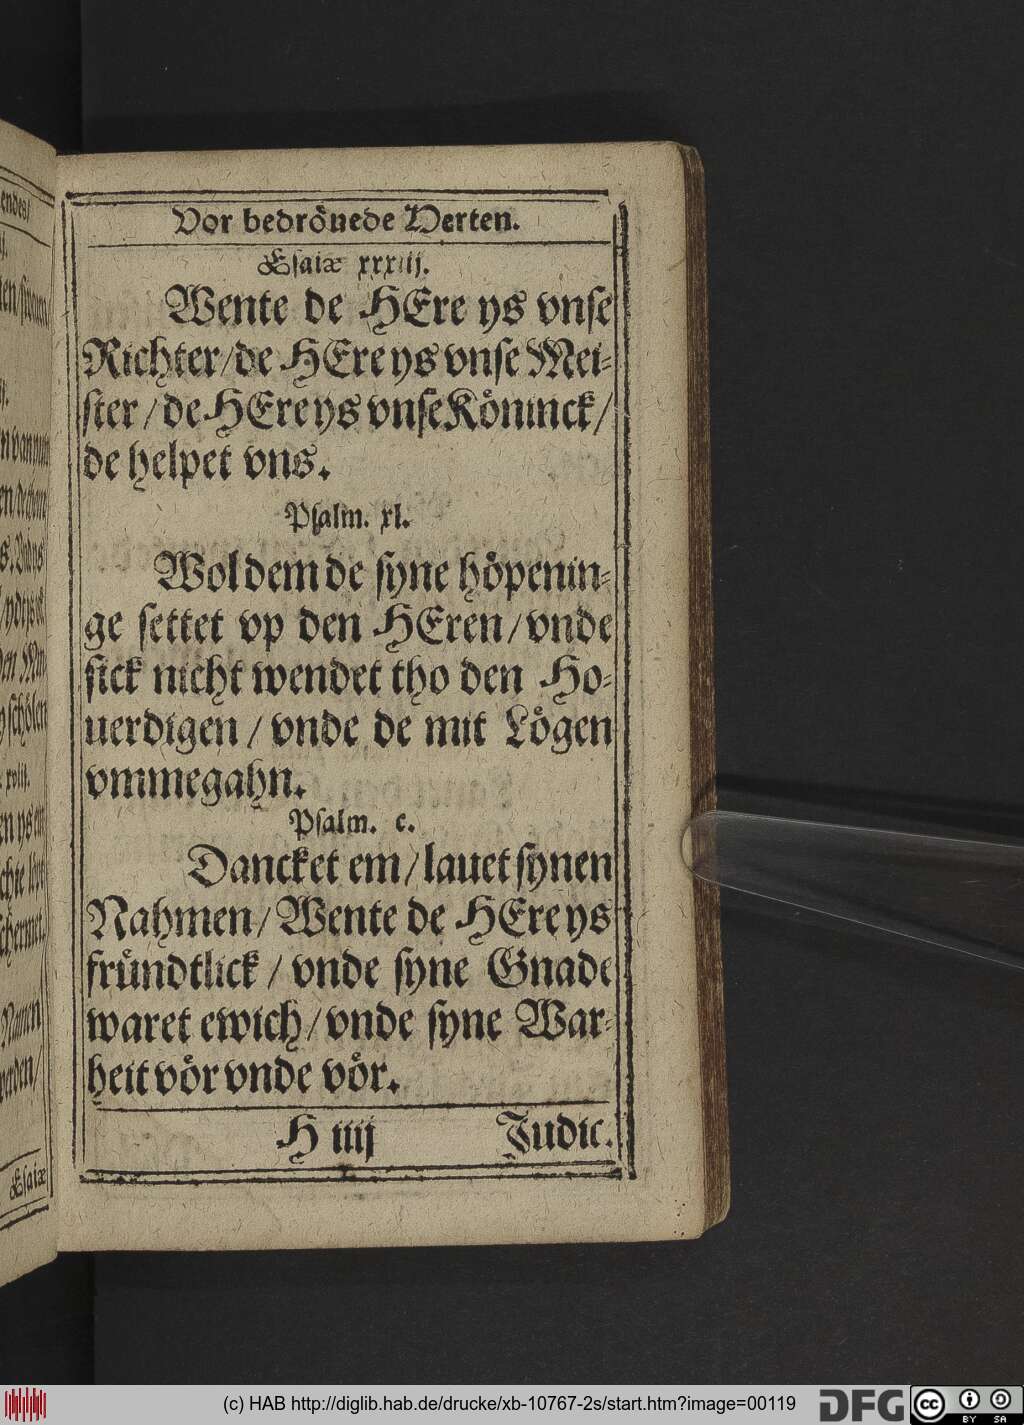 Vor bedröuede Herten.
Esaiæ xxxiij.
Wente de HEre ys vnse
Richter/de HEre ys vnse Mei-
ster/de HEre ys vnse Köninck/
de helpet vns.
Psalm. xl.
Wol dem de syne höpenin-
ge settet vp den HEren/vnde
sick nicht wendet tho den Ho-
uerdigen/vnde de mit Lögen
vmmegahn.
Psalm. c.
Dancket em/lauet synen
Nahmen/Wente de HEre ys
fründtlick/vnde syne Gnade
waret ewich/vnde syne War-
heit vör vnde vör.
H iiij Judic.
Esaiæ
(c) HAB http://diglib.hab.de/drucke/xb-10767-2s/start.htm?image=00119
DFG cc BY SA